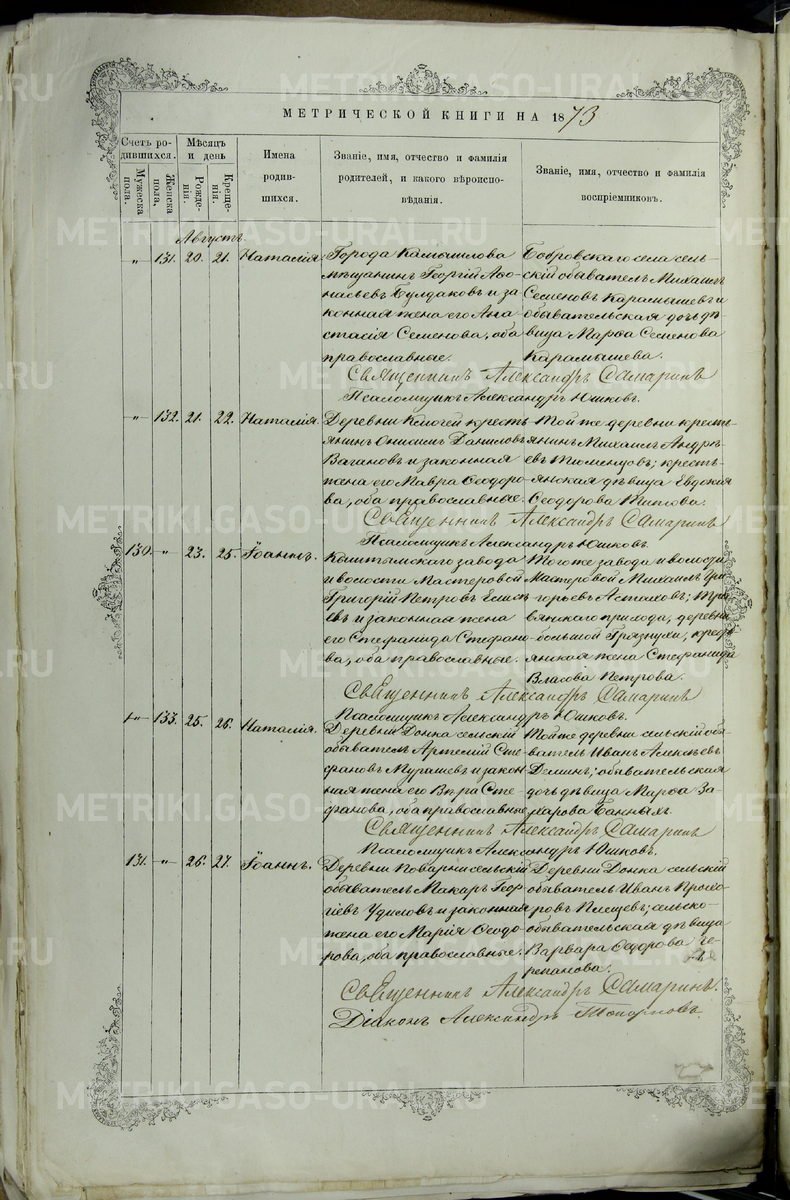 МЕТРИЧЕСКОЙ КНИГИ НА 1873
Счетъ ро-
дившихся.
Мужеска
пола.
Женска
пола.
Мѣсяцъ
и день
Рожде-
нія.
Креще-
нія.
Имена
родив-
шихся.
Званіе, имя, отчество и фамилія
родителей, и какого вѣроиспо-
вѣданія.
Званіе, имя, отчество и фамилія
воспріемниковъ.
Августъ.
„ 131. 20. 21. Наталія.
Города Камышлова
мѣщанинъ Георгій Аѳо-
насьевъ Булдаковъ и за-
конная жена его Ана-
стасія Семенова, оба
православные.
Бобровскаго села сель-
скій обыватель Михаилъ
Семеновъ Карамышевъ и
обывательская дочь дѣ-
вица Марѳа Семенова
Карамышева.
Священникъ Александръ Самаринъ
Псаломщикъ Александръ Юшковъ.
„ 132. 21. 22. Наталія.
Деревни Ключей кресть-
янинъ Онисимъ Даниловъ
Вагановъ и законная
жена его Мавра Ѳеодоро-
ва, оба православные.
Той же деревни кресть-
янинъ Михаилъ Андре-
евъ Тюменцовъ; кресть-
янская дѣвица Евдокія
Ѳеодорова Титова.
Священникъ Александръ Самаринъ
Псаломщикъ Александръ Юшковъ.
130. „ 23. 25. Іоаннъ.
завода
и волости Мастеровой
Григорій Петровъ
евъ и законная жена
его Стефанида Стефано-
ва, оба православные.
Того же завода и волости
Мастеровой Михаилъ Гри-
горьевъ Астаховъ;
прихода, деревни
большой Грязнухи,
янская жена Стефанида
Власова Петрова.
Священникъ Александръ Самаринъ
Псаломщикъ Александръ Юшковъ.
„ 133. 25. 26. Наталія.
Деревни Донка сельскій
обыватель Артемій Сте-
фановъ Мурашевъ и закон-
ная жена его Вѣра Сте-
фанова, оба православные
Той же деревни сельскій обы-
ватель Иванъ Алексѣевъ
Деминъ; обывательская
дочь дѣвица Марѳа За-
харова Банныхъ.
Священникъ Александръ Самаринъ
Псаломщикъ Александръ Юшковъ.
131. „ 26. 27. Іоаннъ.
Деревни Поварни сельскій
обыватель Макаръ Геор-
гіевъ Удиловъ и законная
жена его Марія Ѳеодо-
рова, оба православные.
Деревни Донка сельскій
обыватель Иванъ Прохо-
ровъ Плещевъ; сельско-
обывательская дѣвица
Варвара Ѳедорова Че-
репанова.
Священникъ Александръ Самаринъ.
Діаконъ Александръ Топорковъ.
METRIKI.GASO-URAL.RU